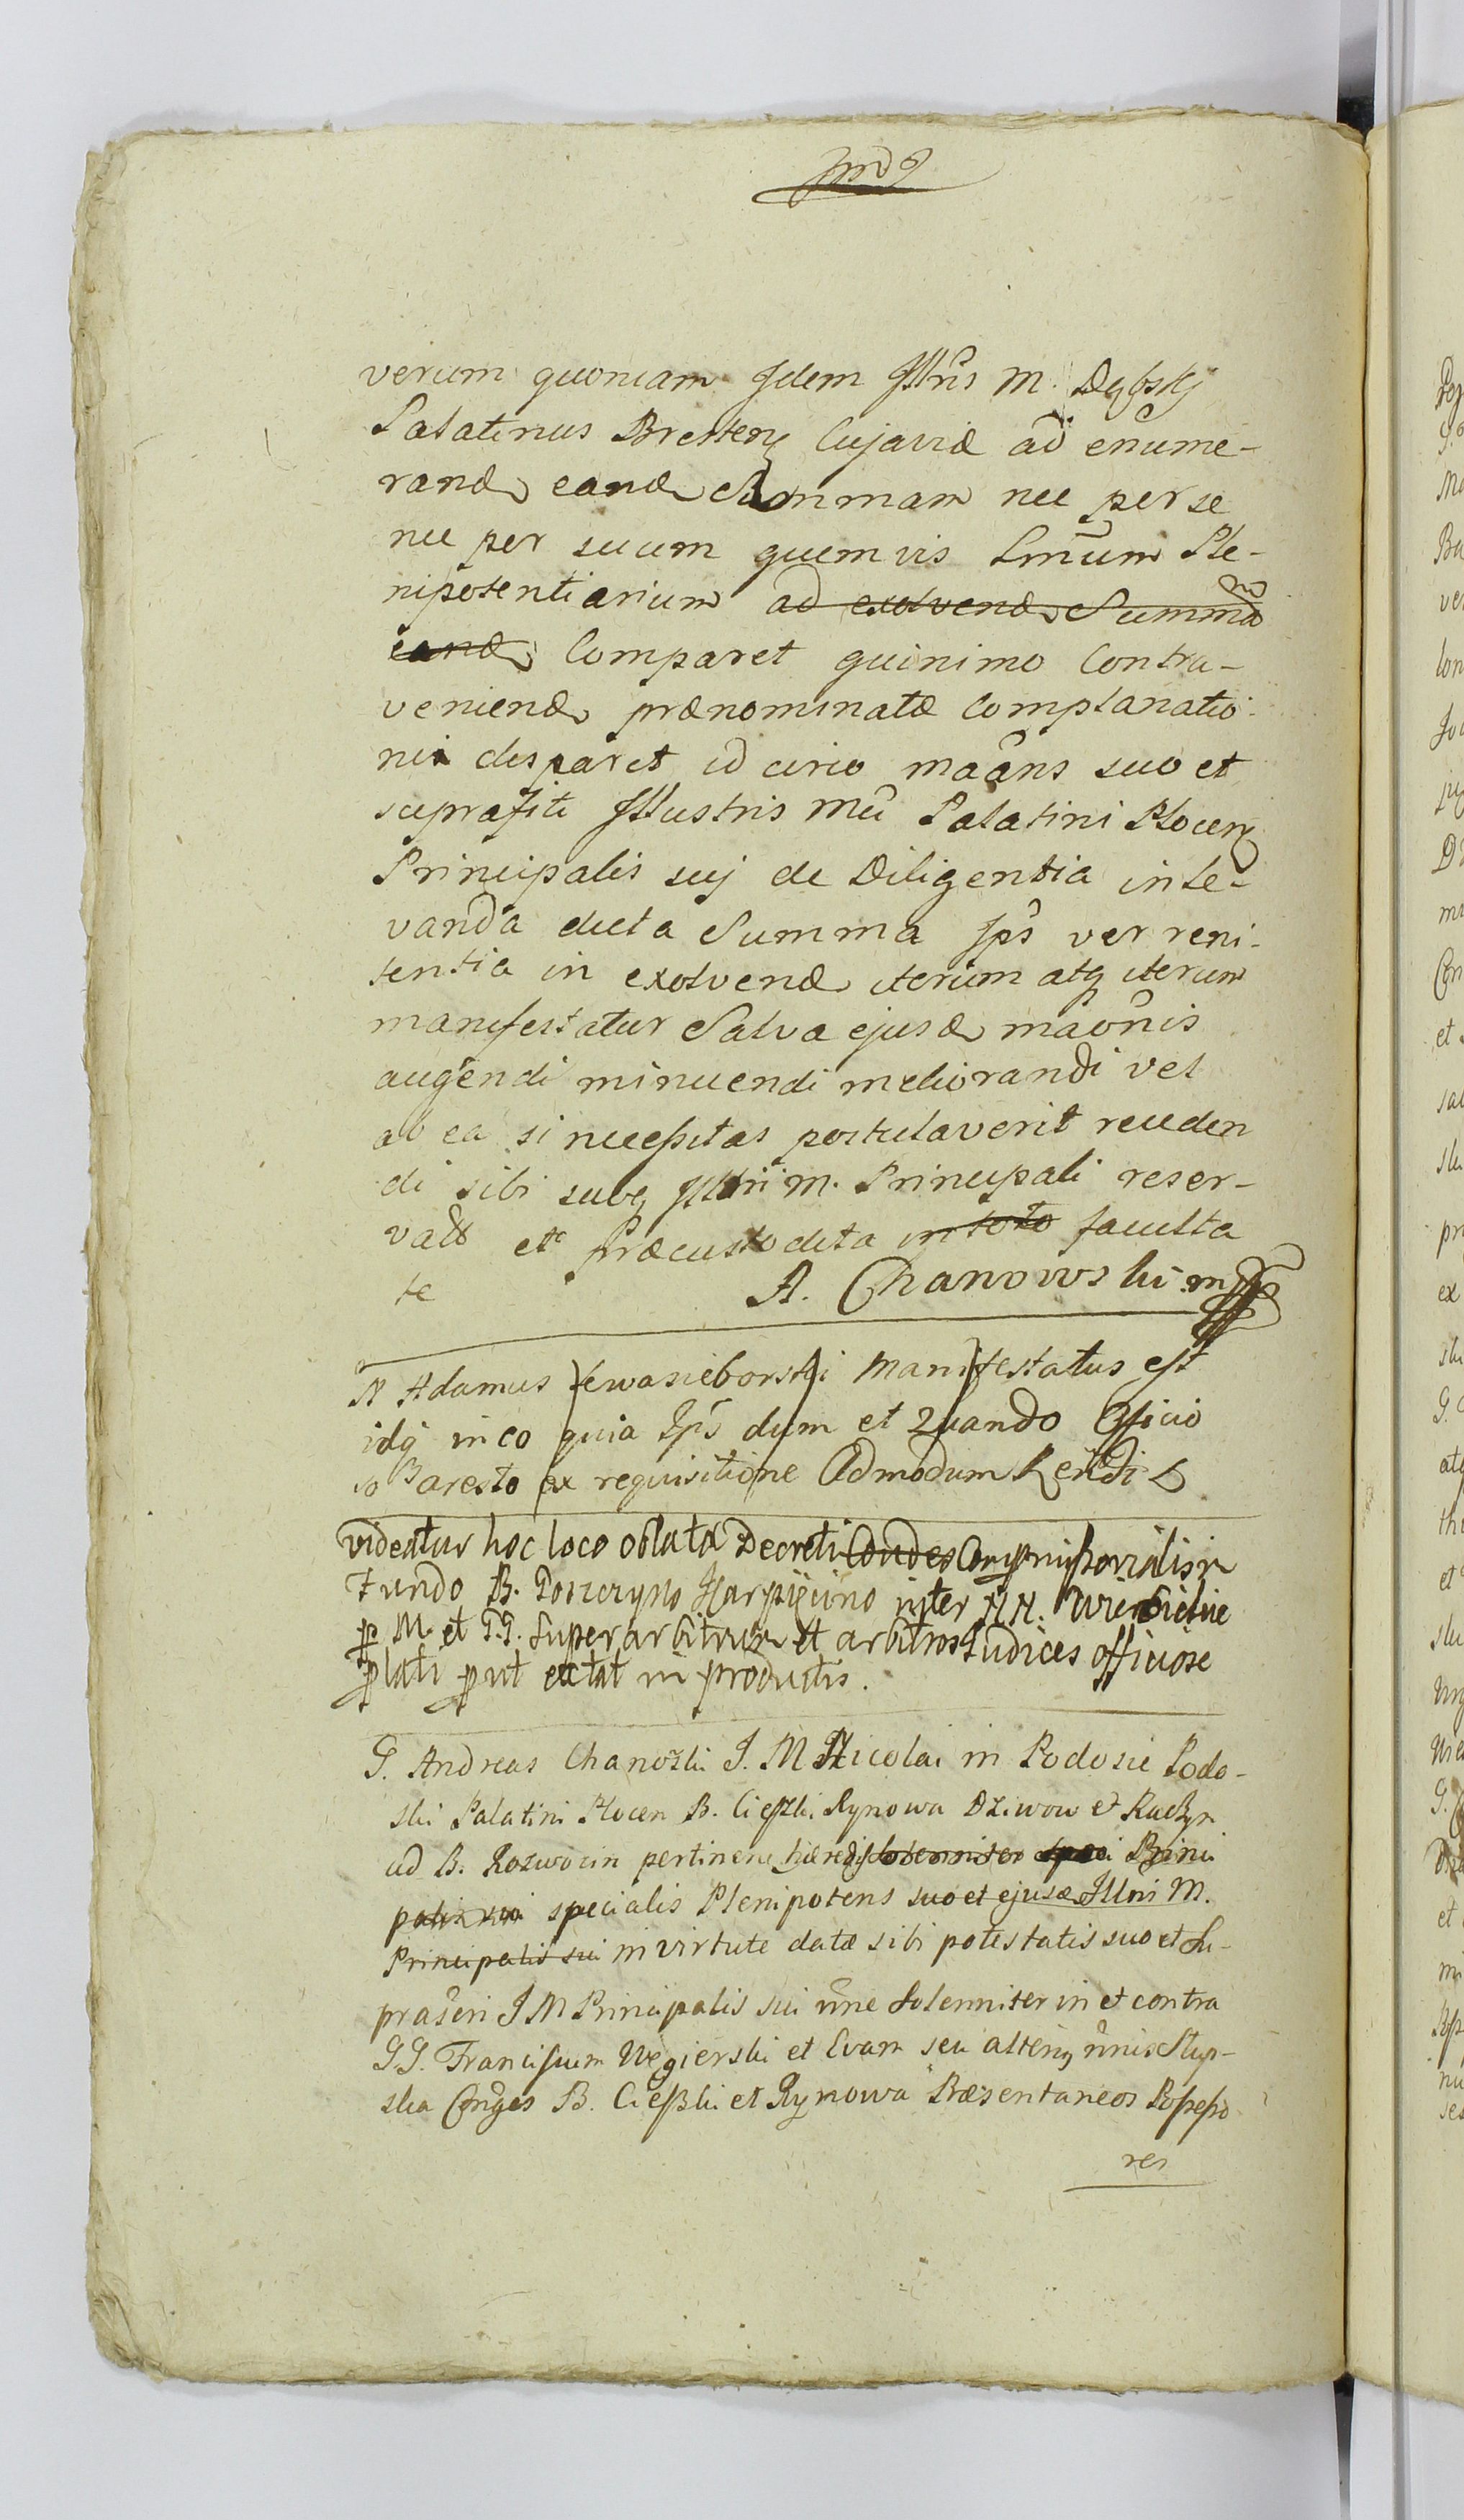 verum quoniam Idem Illris M. Dąbskj
Palatinus Bresten Cujaviæ ad enume-
rand eand Summam nec per se
nec per suum quemvis Lmum Ple-
nipotentiarium ad exolvend Summa
eand Comparet quinimo Contra-
veniend prænominatæ Complanatio-
nis disparet id circo maãns suo et
supra Illustris Mci Palatini Plocen
Principalis sui de Diligentia in le-
vanda dicta Summa Ips ver reni-
tentia in exolvend iterum atq iterum
manifestatur Salva ejusd maõnis
augendi minuendi meliorandi vel
ab ea si necessitas postulaverit receden
di sibi suoq Illri M. Principali reser-
vata etc præcustodita in toto faculta
te A. Chanowski mpp
N Adamus manifestatus est
idq in eo quia Ips dum et Quando Officio
Baresto ex requisitione Admodum Rendi
videatur hoc loco oblata Decreti Condes Compromissorialis in
Fundo B. inter NN.
p M. et G.G. Superarbitrum et arbitros Judices officiose
plati put extat in productis.
G. Andreas Chanowski I. M Nicolai in Podosie Podo-
ski Palatini Plocen B. Ciesski Rynowa Dziwow et
ad B. pertinen hæredis Solenniter Princi
palis sui specialis Plenipotens suo et ejusd Illris M.
Principalis sui in virtute datæ sibi potestatis suo et Su-
prascri I M Principalis sui nne Solenniter in et contra
G.G. Franciscum Węgierski et Evam seu alterius nnis Słup-
ska Conges B. Ciesski et Rynowa Præsentaneos Possesso
res